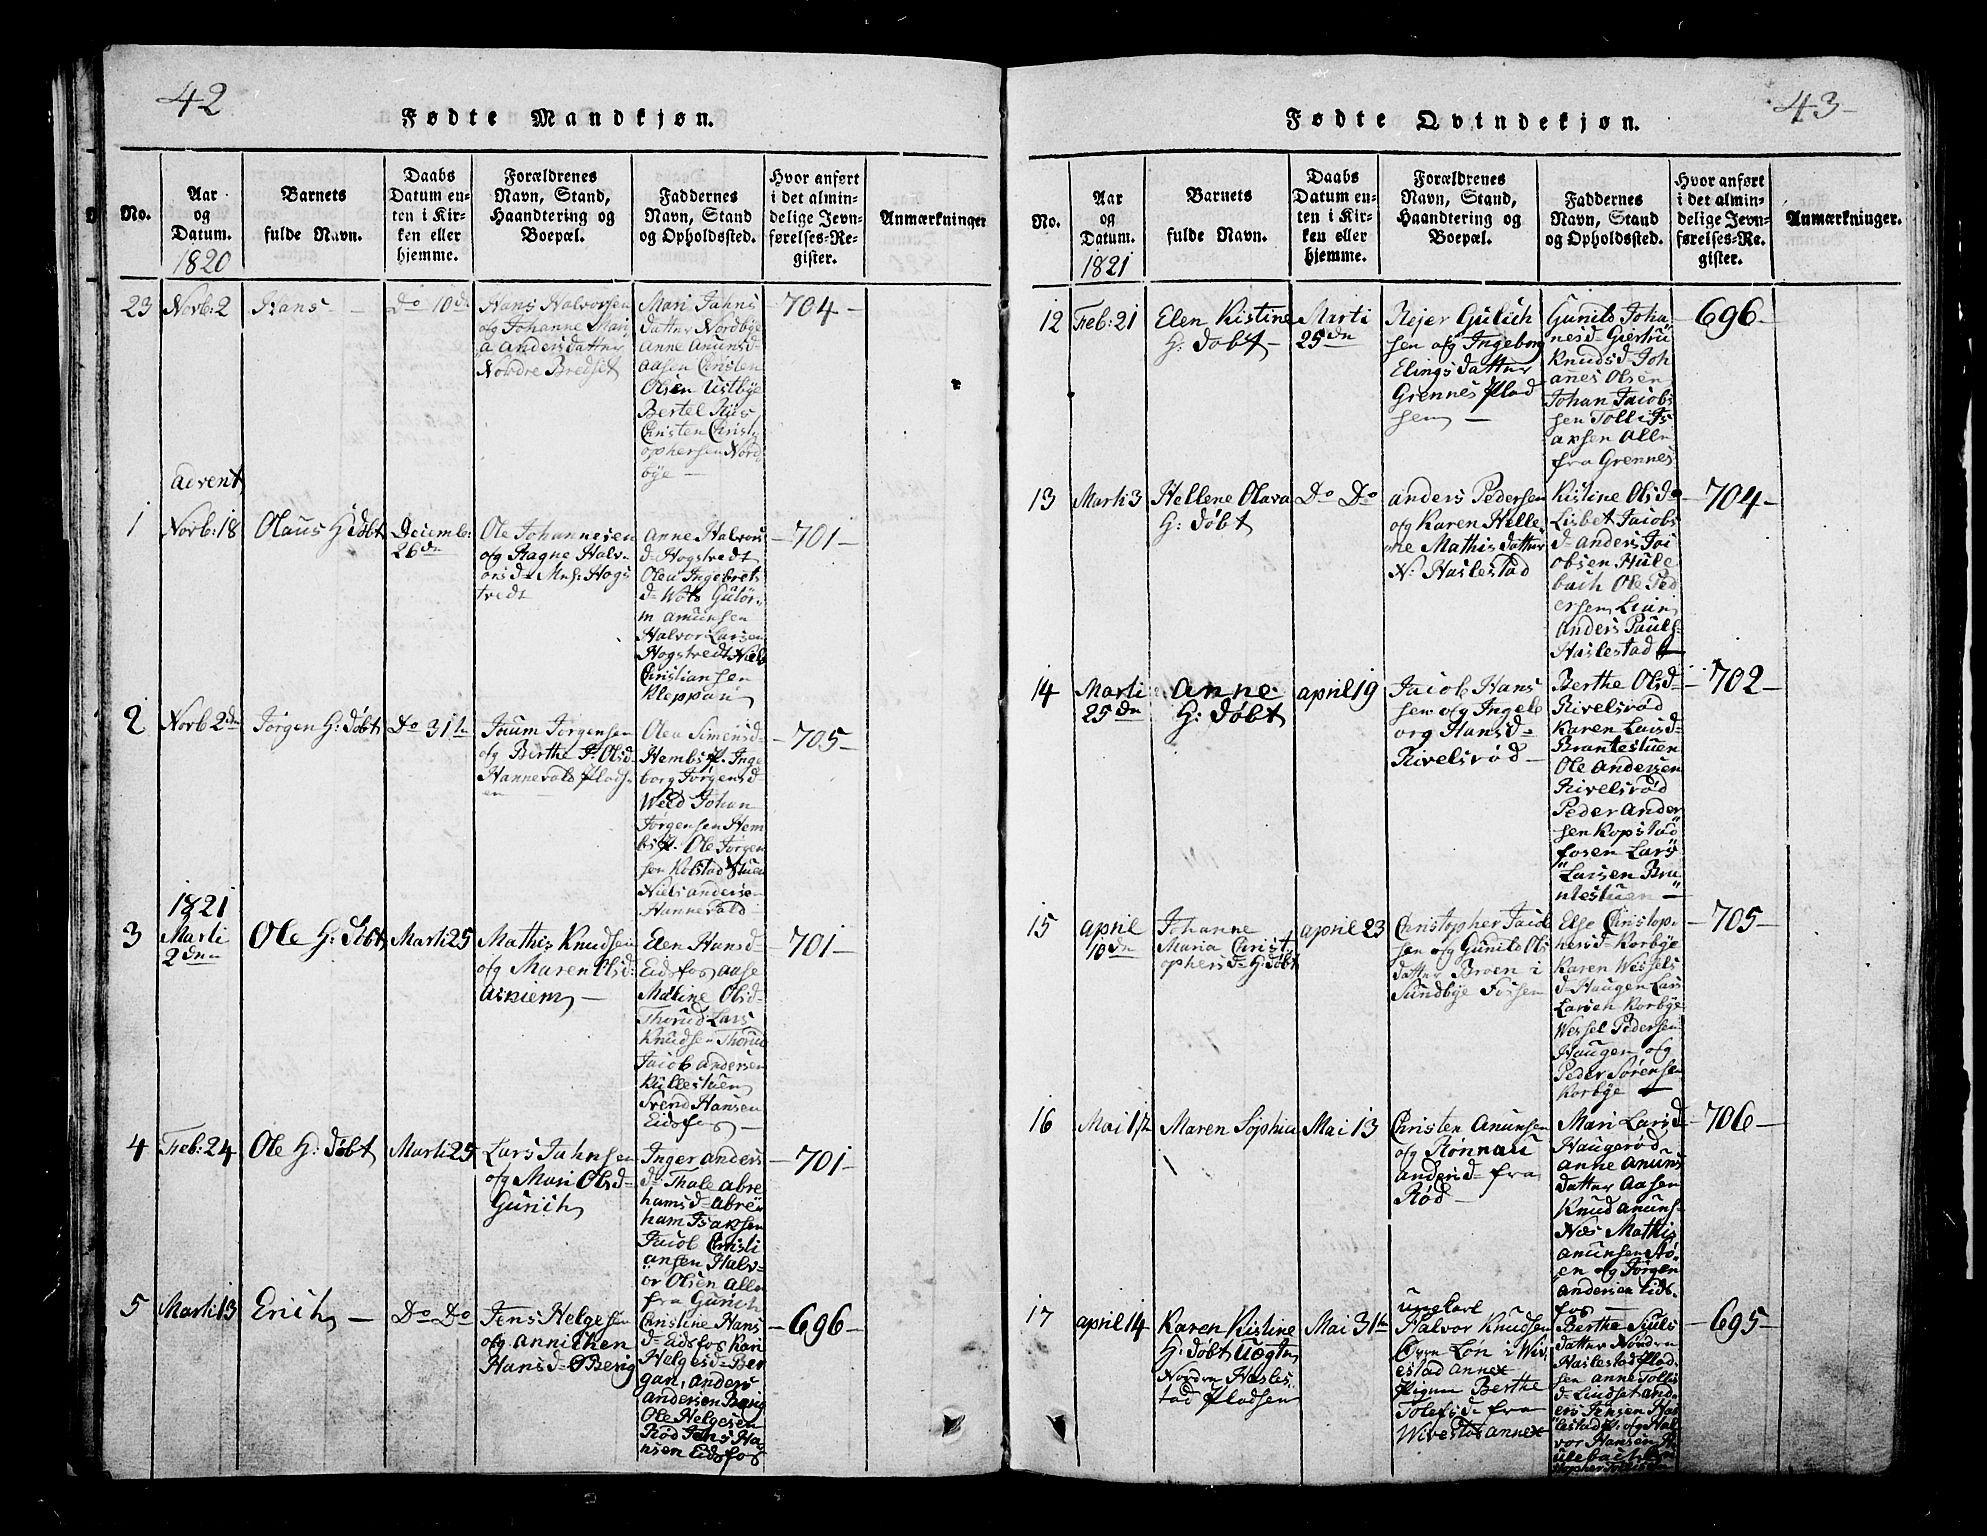 42
Fødte Mandkjøn.
No.
Aar
og
Datum.
1820
Barnets
fulde Navn.
Daabs
Datum en-
ten i Kir-
ken eller
hjemme.
Forældrenes
Navn, Stand,
Haandtering og
Boepæl.
Faddernes
Navn, Stand
og Opholdssted.
Hvor anført
i det almin-
delige Jevn-
førelses-Re-
gister.
Anmærkninger
23
Novb: 2
Hans -
Do 10de
Hans Halvorsen
og Johanne Mari
a Andersdatter
Nordre Bredset
Mari Jahns
datter Nordbye
Anne Anunsd
Aasen Christen
Olsen Ustbye
Bertel Riis
Christen Christ
ophersen Nord
bye -
-704-
Advent
1
Novb: 18
Olaus H: døbt
Decemb:
26de
Ole Johannesen
og Ragne Halv
orsd- Hogs
tvedt
Anne Halvors
d- Hogstvedt
Olea Ingebret
d- Gulor
m Amunsen
Halvor Larsen
Hogstvedt Niels
Christiansen
Kleppan
-701-
2
Novb 2dn
Jørgen H: døbt
Do 31te
Jørgensen
og Berthe Olsd-
Hannevold Plads
en
Olea Simensd-
Hembs Inge
borg Jørgensd
Johan
Jørgensen Hem
bs Ole Jørgen
sen Kolstad Stuen
Niels Andersen
Hannevold
-705-
1821
3
Marti
2dn
Ole H: døbt
Marti 25
Mathis Knudsen
og Maren Olsd-
Askiem -
Elen Hansd-
Eidsfos Aase
Maline Olsd-
Thorud Lars
Knudsen Thorud
Jacob Andersen
Kullestuen
Svend Hansen
Eidsfos -
-701-
4
Feb: 24
Ole H: døbt
Marti 25
Lars Jahnsen
og Mari Olsd-
Gurich
Inger Anders
d- Thale Abre
hamsd- Abre
ham Isaksen
Jacob Christi
ansen Halv
or Olsen Alle
fra Gurich
-701-
5
Marti 13
Erich -
Do Do
Jens Helgesen
og Annichen
Hansd- Berig
Christine Hans
d- Eidsfos Kari
Helgesd- Ber
gan, Anders
Andersen Berig
Ole Helgesen
Rød Jens Ha
nsen Eidsfos
-696-
43
Fødte Qvindekjøn.
No.
Aar
og
Datum.
1821
Barnets
fulde Navn.
Daabs
Datum en-
ten i Kir-
ken eller
hjemme.
Forældrenes
Navn, Stand,
Haandtering og
Boepæl.
Faddernes
Navn, Stand
og Opholdssted.
Hvor anført
i det almin-
delige Jevn-
førelses-Re-
gister.
Anmærkninger.
12
Feb: 21
Elen Kistine
H: døbt -
Marti
25dn
Rejer Gulich
sen og Ingeborg
Elingsdatter
Grennes Plad
sen -
Gunild Joha
nesd Giertru
Knudsd- Joh
anes Olsen
Johan Jacobs
sen Tollif Is
aksen Alle
fra Grennes
-696-
13
Marti 3
Hellene Olava
H: døbt
Do Do
Anders Pedersen
og Karen Helle
ne Mathisdatter
N: Haslestad
Kistine Olsd-
Lisbet Jacobs
d- Anders Jac
obsen Hule
bach Ole Ped
ersen Lian
Anders Pauls
Haslestad
-704-
14
Marti
25dn
Anne
H: døbt
April 19
Jacob Hans
sen og Ingeb
org Hansd-
Rivelsrød -
Berthe Olsd-
Rivelsrød
Karen Larsd-
Brantestuen
Ole Andersen
Rivelsrød
Peder Ander
sen Kopstad
fosen Lars
Larsen Bra
ntestuen -
-702-
15
April
10dn
Johanne
Maria Christ
ophersd- H: døbt
April 23
Christopher Jacob
sen og Gunild Ols
datter Broen i
Sundbye Fossen
Else Christop
hersd- Korbye
Karen Wessels
d- Haugen Lars
Larsen Korbye
Wessel Pedersen
Haugen og
Peder Sørensen
Korbye -
-705-
16
Mai 1te
Maren Sophia
Mai 13
Christen Anunsen
og Rønnau
Andersd- fra
Rød -
Mari Larsd-
Haugerød
Anne Anuns
datter Aasen
Knud Anuns
Næs Mathis
Anunsen
en og Jørgen
Andersen Eids
fos -
-706-
17
April 14
Karen Kistine
H: døbt Uægte
Nordre Hasles
tad Pladsen
Mai 31te
ungkarl
Halvor Knudsen
Øvre Løn i Wiv
estad Annex
Pigen Berthe
Tolefsd- fra
Wivestad Annex
Berthe Niels
datter Nordre
Haslestad Plad
sen Anne Tollis
d- Lindset And
ers Jensen Has
lestad og Hal
vor Hansen H
ulebach
-695-